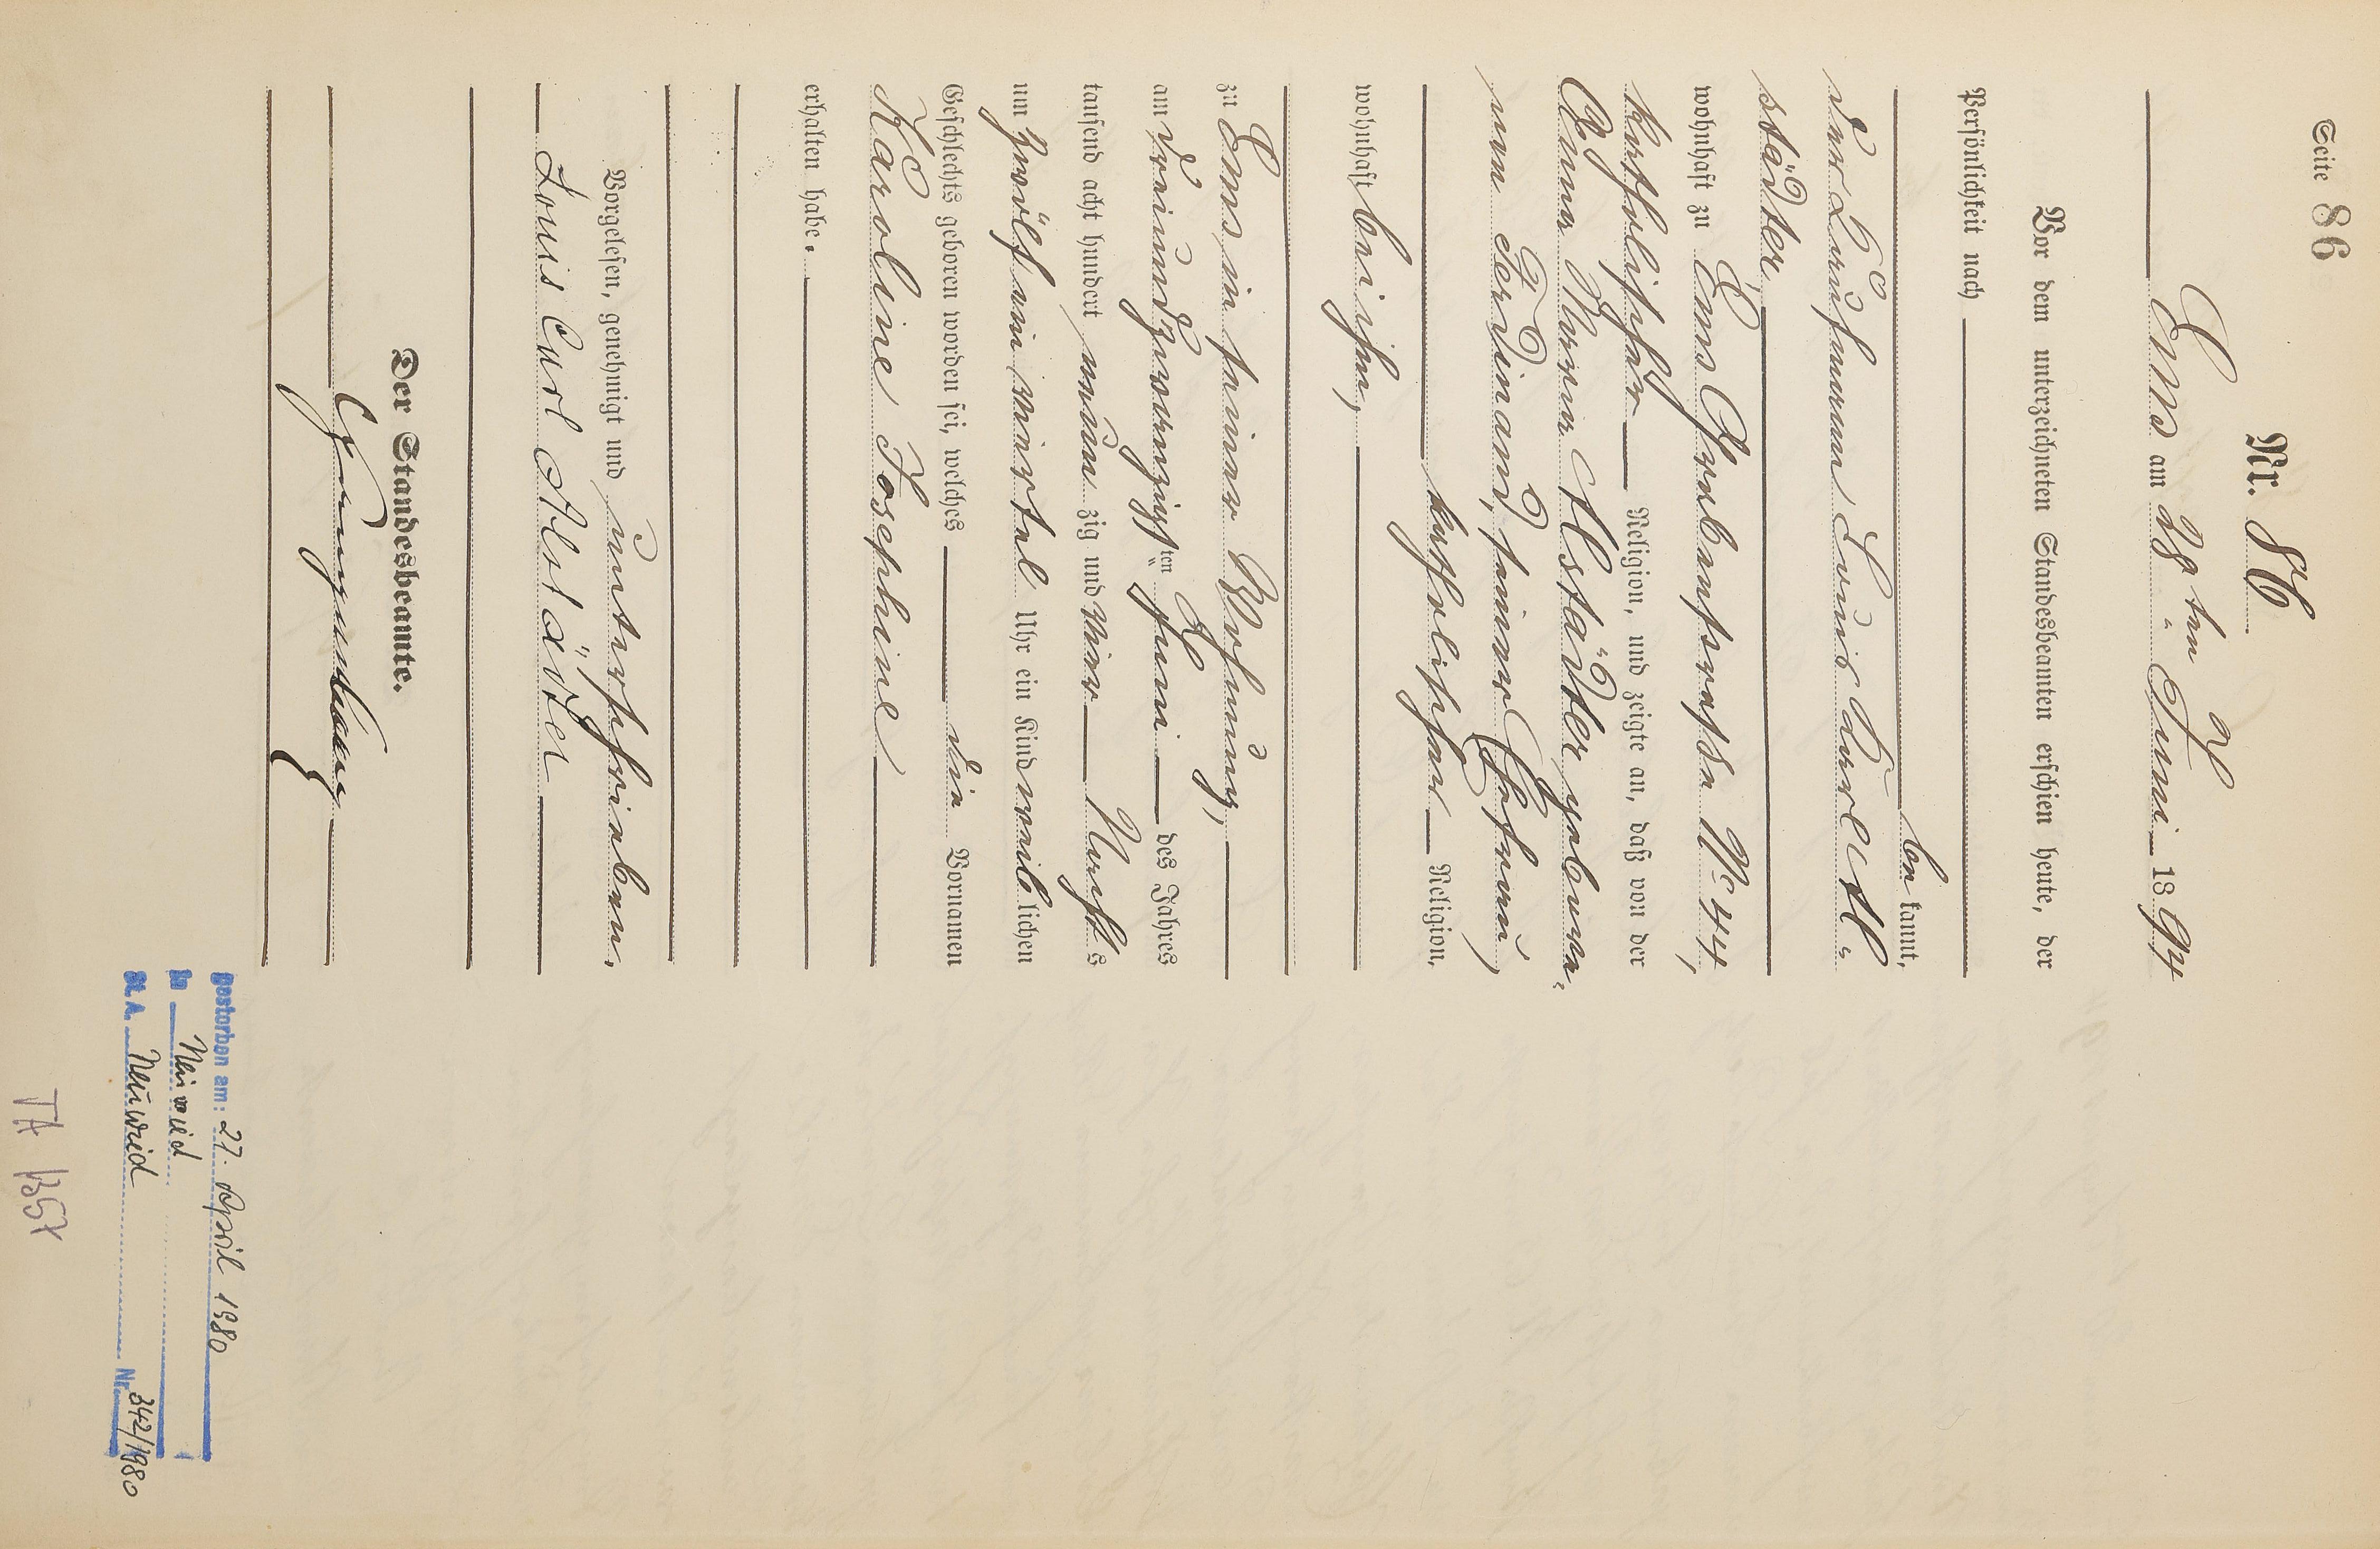 Seite 86
Nr. 86
Ems am 28 ten Juni 1894
Vor dem unterzeichneten Standesbeamten erschien heute, der
Persönlichkeit nach
be kannt,
der Kaufmann Louis Carl Alt-
städter,
wohnhaft zu Ems Grabenstraße No 44,
katholischer Religion, und zeigte an, daß von der
Anna Maria Altstädter gebore-
nen Ferdinand, seiner Ehefrau,
katholischer Religion,
wohnhaft bei ihm,
zu Ems in seiner Wohnung,
am dreiundzwanzigsten Juni des Jahres
tausend acht hundert neun zig und vier Nachts
um zwölf ein viertel Uhr ein Kind weiblichen
Geschlechts geboren worden sei, welches die Vornamen
Karoline Josephine
erhalten habe.
Vorgelesen, genehmigt und unterschrieben.
Louis Carl Altstädter
Der Standesbeamte.
gestorben am: 27. April 1980
in Neuwied
St. A. Neuwied Nr. 342/1980